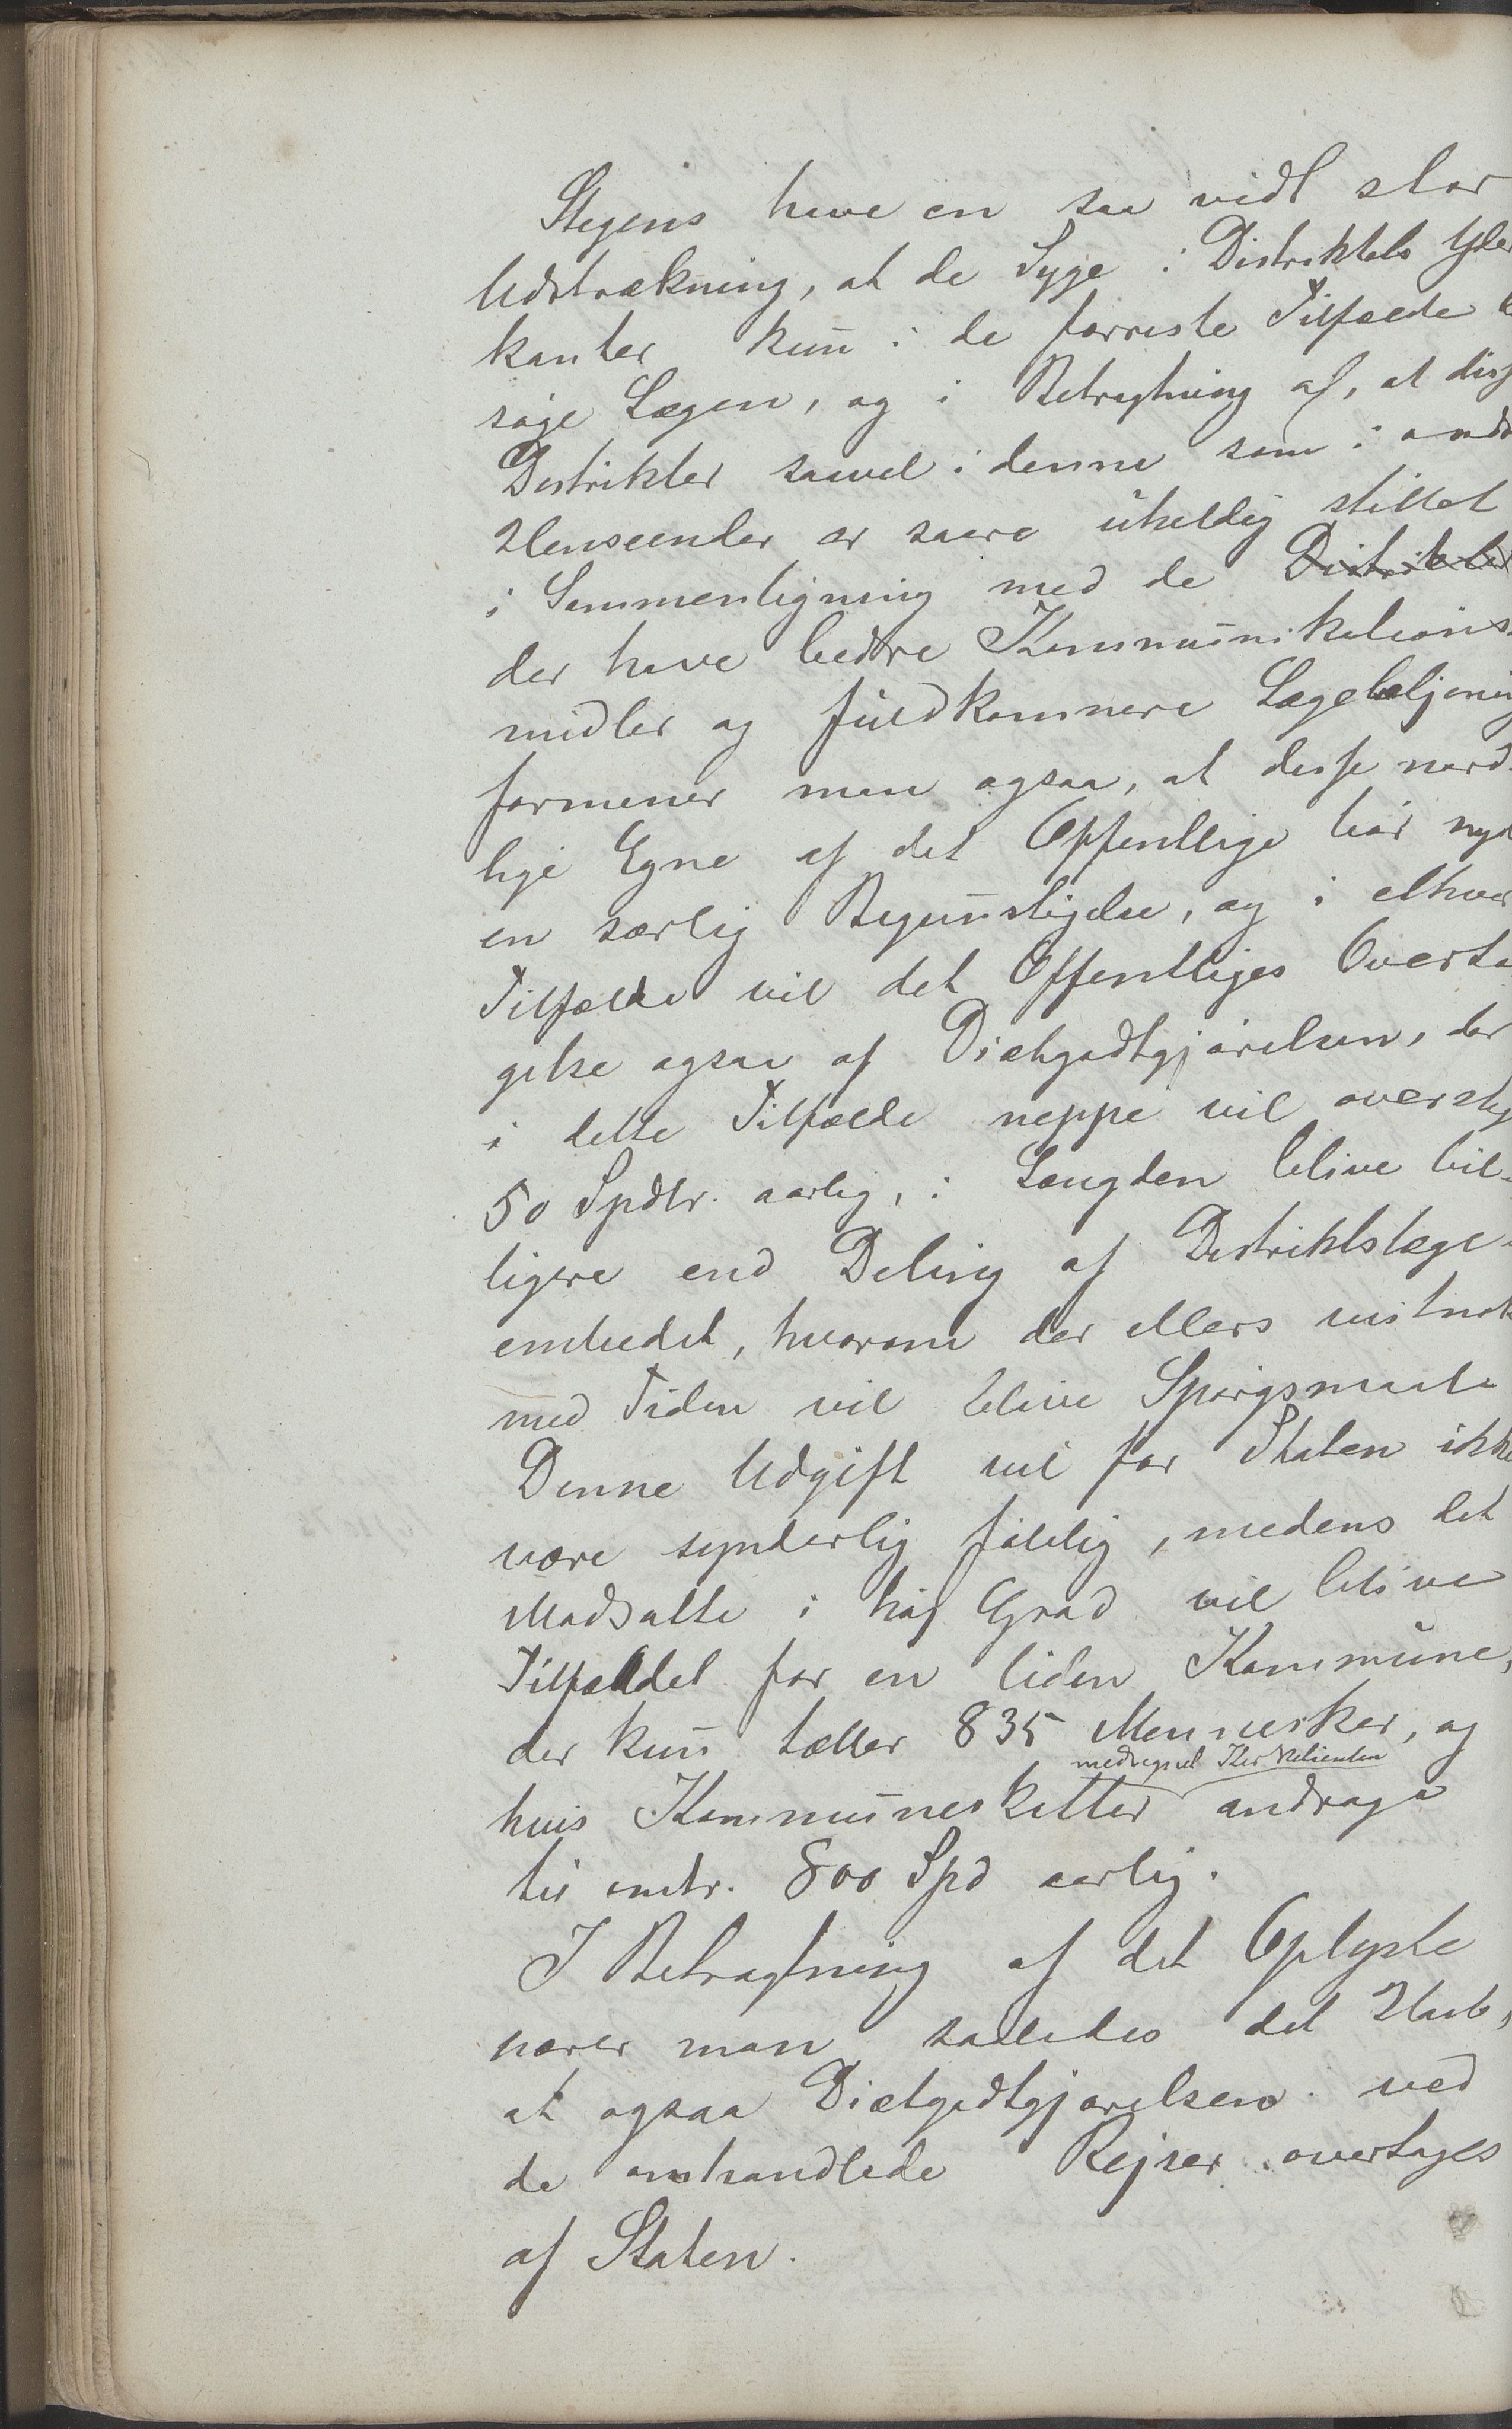 Stegens have en saa vidt stor
Udstrækning, at de Syge i Distriktets Yder
kanter kun i de færreste Tilfælde
søge Lægen, og i Betragtning af, at disse
Distrikter saavel i denne som i
Henseender er saare uheldig stillet
i Sammenligning med de Distrikter
der have bedre Kommunikations-
midler og fuldkomnere Lægebetjening
formener man ogsaa, at disse nord-
lige Egne af det Offentlige bør nyde
en særlig Begunstigelse, og i ethvert
Tilfælde vil det Offentliges Overta
gelse ogsaa af Diætgodtgjørelsen, der
i dette Tilfælde neppe vil overstige
50 Spdlr. aarlig, i Længden blive bil-
ligere end Deling af Distriktslæge-
embedet, hvorom der ellers vistnok
med Tiden vil blive Spørgsmaal.
Denne Udgift vil for Staten ikke
være synderlig følelig, medens det
Modsatte i høj Grad vil blive
Tilfældet for en liden Kommune,
der kun tæller 835 Mennesker, og
medregnet
hvis Kommuneskatter andrage
til omtr. 800 Spd aarlig.
I Betragtning af det Oplyste
nærer man saaledes det Haab,
at ogsaa Diætgodtgjørelsen ved
de omhandlede Rejser overtages
af Staten.